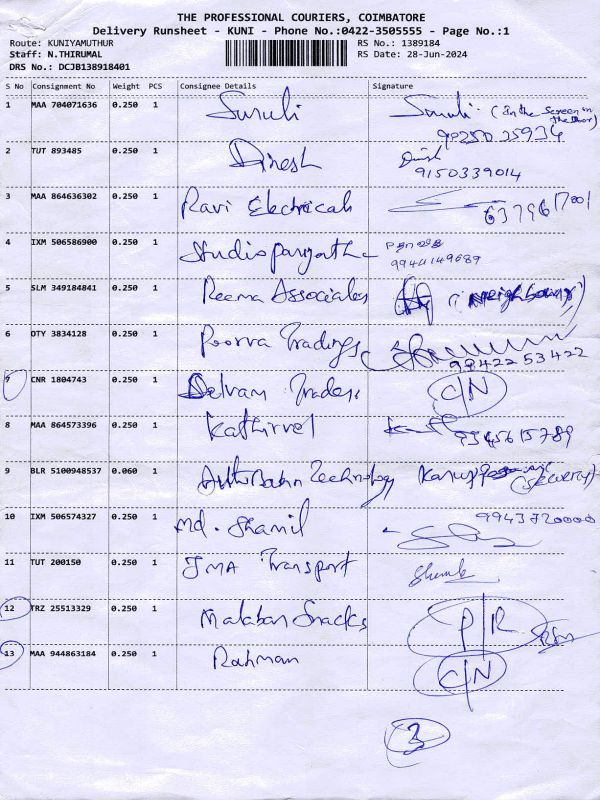 THE PROFESSIONAL COURIERS, COIMBATORE
Delivery Runsheet - KUNI - Phone No.:0422-3505555 - Page No.:1
Route: KUNIYAMUTHUR RS No.: 1389184
Staff: N.THIRUMAL RS Date: 28-Jun-2024
DRS No.: DCJB138918401
S No Consignment No Weight PCS Consignee Details Signature
1 MAA 704071636 0.250 1 Suruli Suruli (In the Screen in the Door)
9025035934
2 TUT 893485 0.250 1 Dinesh Dinesh
9150339014
3 MAA 864636302 0.250 1 Ravi Electricals 6379617001
4 IXM 506586900 0.250 1
9944149689
5 SLM 349184841 0.250 1 Reema Associates (Neighbour)
6 OTY 3834128 0.250 1 Poorva Tradings 99422 53422
7 CNR 1804743 0.250 1 Selvam Traders C/N
8 MAA 864573396 0.250 1 Kathirvel 9345615789
9 BLR 5100948537 0.060 1 Technology (Security)
10 IXM 506574327 0.250 1 Md. Shamil 9943720000
11 TUT 200150 0.250 1 JMA Transport
12 TRZ 25513329 0.250 1 Malabar Snacks P/R
13 MAA 944863184 0.250 1 Rahman C/N
3